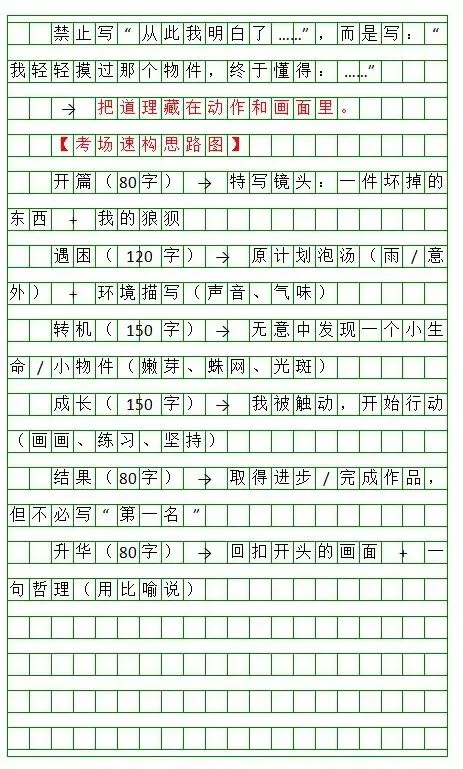 禁止写“从此我明白了……”，而是写：“
我轻轻摸过那个物件，终于懂得：……”
→ 把道理藏在动作和画面里。
【考场速构思路图】
开篇（80字） → 特写镜头：一件坏掉的
东西 + 我的狼狈
遇困（120字） → 原计划泡汤（雨/意
外） + 环境描写（声音、气味）
转机（150字） → 无意中发现一个小生
命/小物件（嫩芽、蛛网、光斑）
成长（150字） → 我被触动，开始行动
（画画、练习、坚持）
结果（80字） → 取得进步/完成作品，
但不必写“第一名”
升华（80字） → 回扣开头的画面 + 一
句哲理（用比喻说）